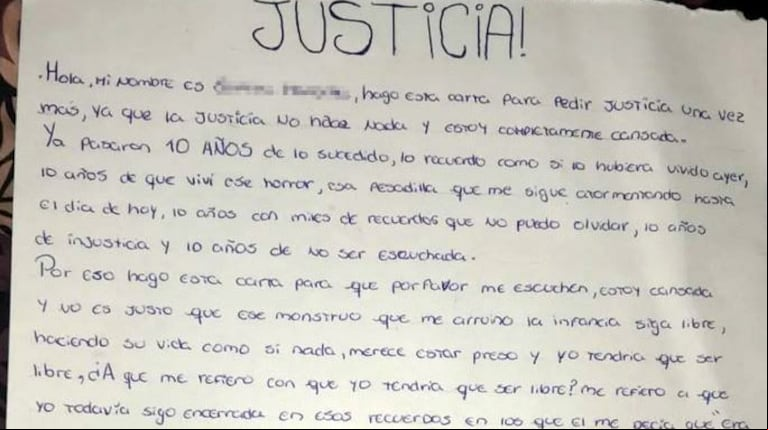 JUSTICIA!
.Hola, Mi Nombre es , hago esta carta para Pedir JUSTICIA una vez
mas, ya que la JUSTICIA No hace Nada y estoy completamente cansada.
Ya Pasaron 10 AÑOS de lo sucedido, lo recuerdo como si lo hubiera vivido ayer,
10 años de que vivi ese horror, esa Pesadilla que me sigue atormentando hasta
el dia de hoy, 10 años con miles de recuerdos que No puedo olvidar, 10 años
de injusticia y 10 años de No ser escuchada.
Por eso hago esta carta para que porfavor me escuchen, estoy cansada
Y No es Justo que ese monstruo que me arruino la infancia siga libre,
haciendo su vida como si nada, merece estar preso y yo tendria que ser
libre, ¿A que me refiero con que yo tendria que ser libre? me refiero a que
yo todavía sigo encerrada en esos recuerdos en los que el me decia que "era